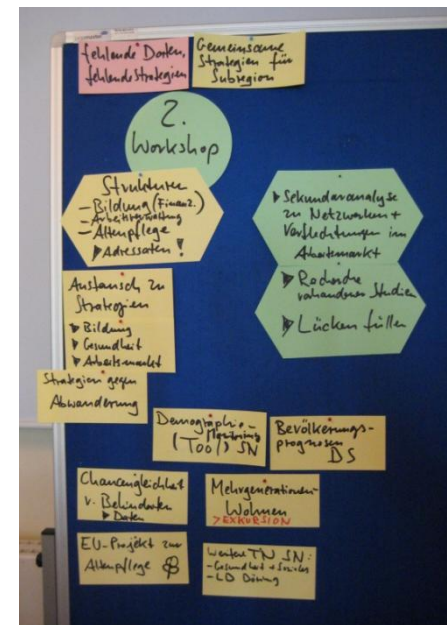 fehlende Daten,
fehlende Strategien
Gemeinsame
Strategien für
Subregion
2.
Workshop
Strukturen
- Bildung (Finanz.)
- Arbeitsverwaltung
- Altenpflege
Adressaten !
Sekundäranalyse
zu Netzwerken +
Verflechtungen im
Arbeitsmarkt
Recherche
vorhandener Studien
Lücken füllen
Austausch zu
Strategien
Bildung
Gesundheit
Arbeitsmarkt
Strategien gegen
Abwanderung
Demographie-
Monitoring
(Tool) SN
Bevölkerungs-
prognosen
DS
Chancengleichheit
v. Behinderten
Daten
Mehrgenerationen-
Wohnen
> EXKURSION
EU-Projekt zur
Altenpflege
Weitere TN SN:
- Gesundheit + Soziales
- LD